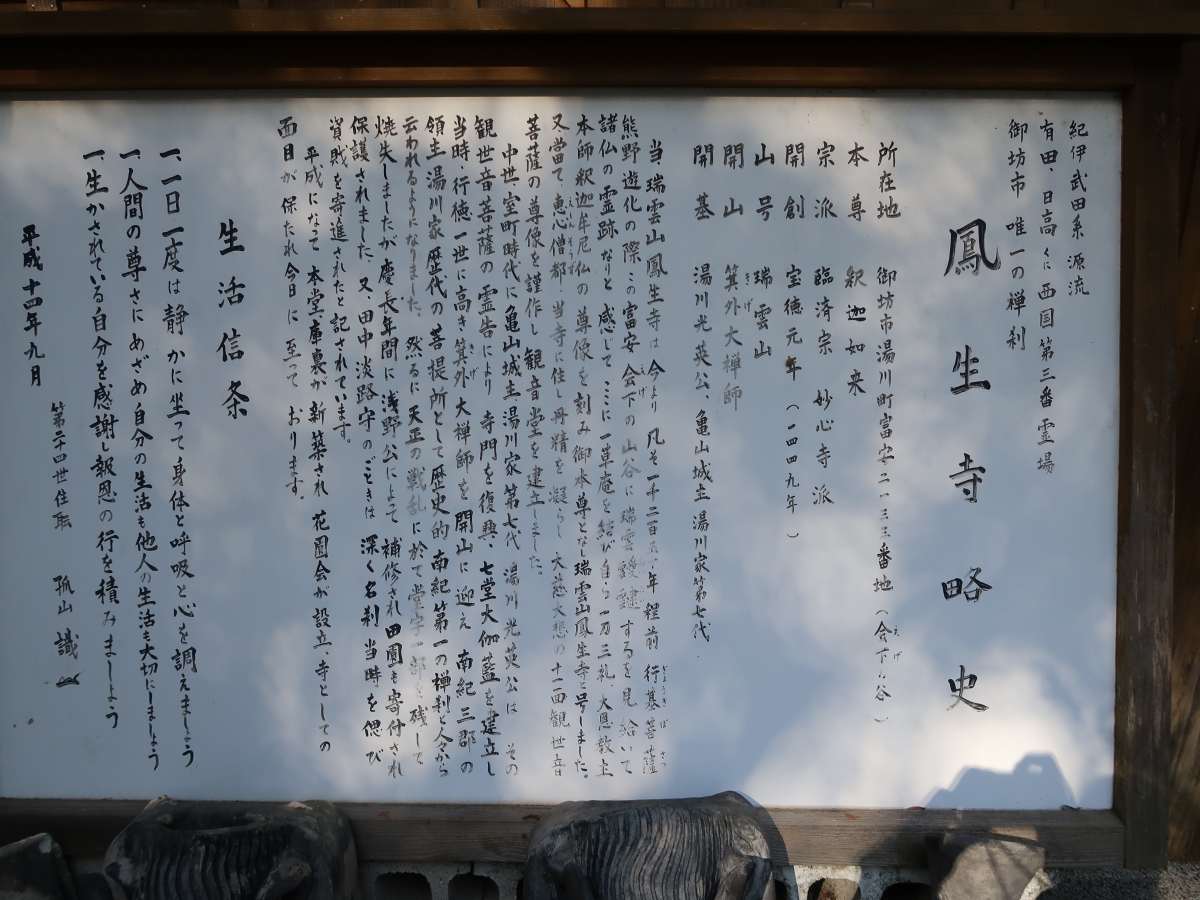 紀伊武田系源流
有田、日高くに西国第三番霊場
御坊市 唯一の禅刹
鳳生寺略史
所在地 御坊市湯川町富安二一三三番地(会下ヶ谷)
えげ
本尊 釈迦如来
宗派 臨済宗 妙心寺派
開創 宝徳元年(一四四九年)
山号 瑞雲山
開山 箕外大禅師
きげ
開基 湯川光英公、亀山城主 湯川家第七代
当瑞雲山鳳生寺は 今より 凡そ一千二百五、年程前 行基菩薩
ぎょうきぼさつ
熊野遊化の際 この富安 会下の山谷に 瑞雲靉靆するを見給いて
えげ
諸仏の霊跡なりと感じて ここに一草庵を結び自ら一刀三礼 大恩教主
本師釈迦牟尼仏の尊像を刻み御本尊となし瑞雲山鳳生寺と号しました。
又當て、恵心僧都、当寺に住し丹精を凝らし 大慈大悲の十一面観世音
えしんそうず
菩薩の尊像を謹作し 観音堂を建立しました。
中世、室町時代に亀山城主湯川家第七代 湯川光英公は その
観世音菩薩の霊告により 寺門を復興、七堂大伽藍を建立し
当時、行徳一世に高き箕外大禅師を 開山に迎え 南紀三郡の
きげ
領主湯川家歴代の菩提所として歴史的南紀第一の禅刹と人々から
云われるようになりました。然るに 天正の戦乱に於て堂宇一部を残して
焼失しましたが慶長年間に浅野公によって 補修され田園も寄付され
保護されました。又、田中淡路守のごときは 深く名刹当時を偲び
資財を寄進されたと記されています。
平成になって 本堂庫裏が新築され 花園会が設立、寺としての
面目が保たれ今日に至って おります。
生活信条
一、一日一度は静かに坐って身体と呼吸と心を調えましょう
一、人間の尊さにめざめ自分の生活も他人の生活も大切にしましょう
一、生かされている自分を感謝し報恩の行を積みましょう
平成十四年九月
第二十四世住職 孤山 識